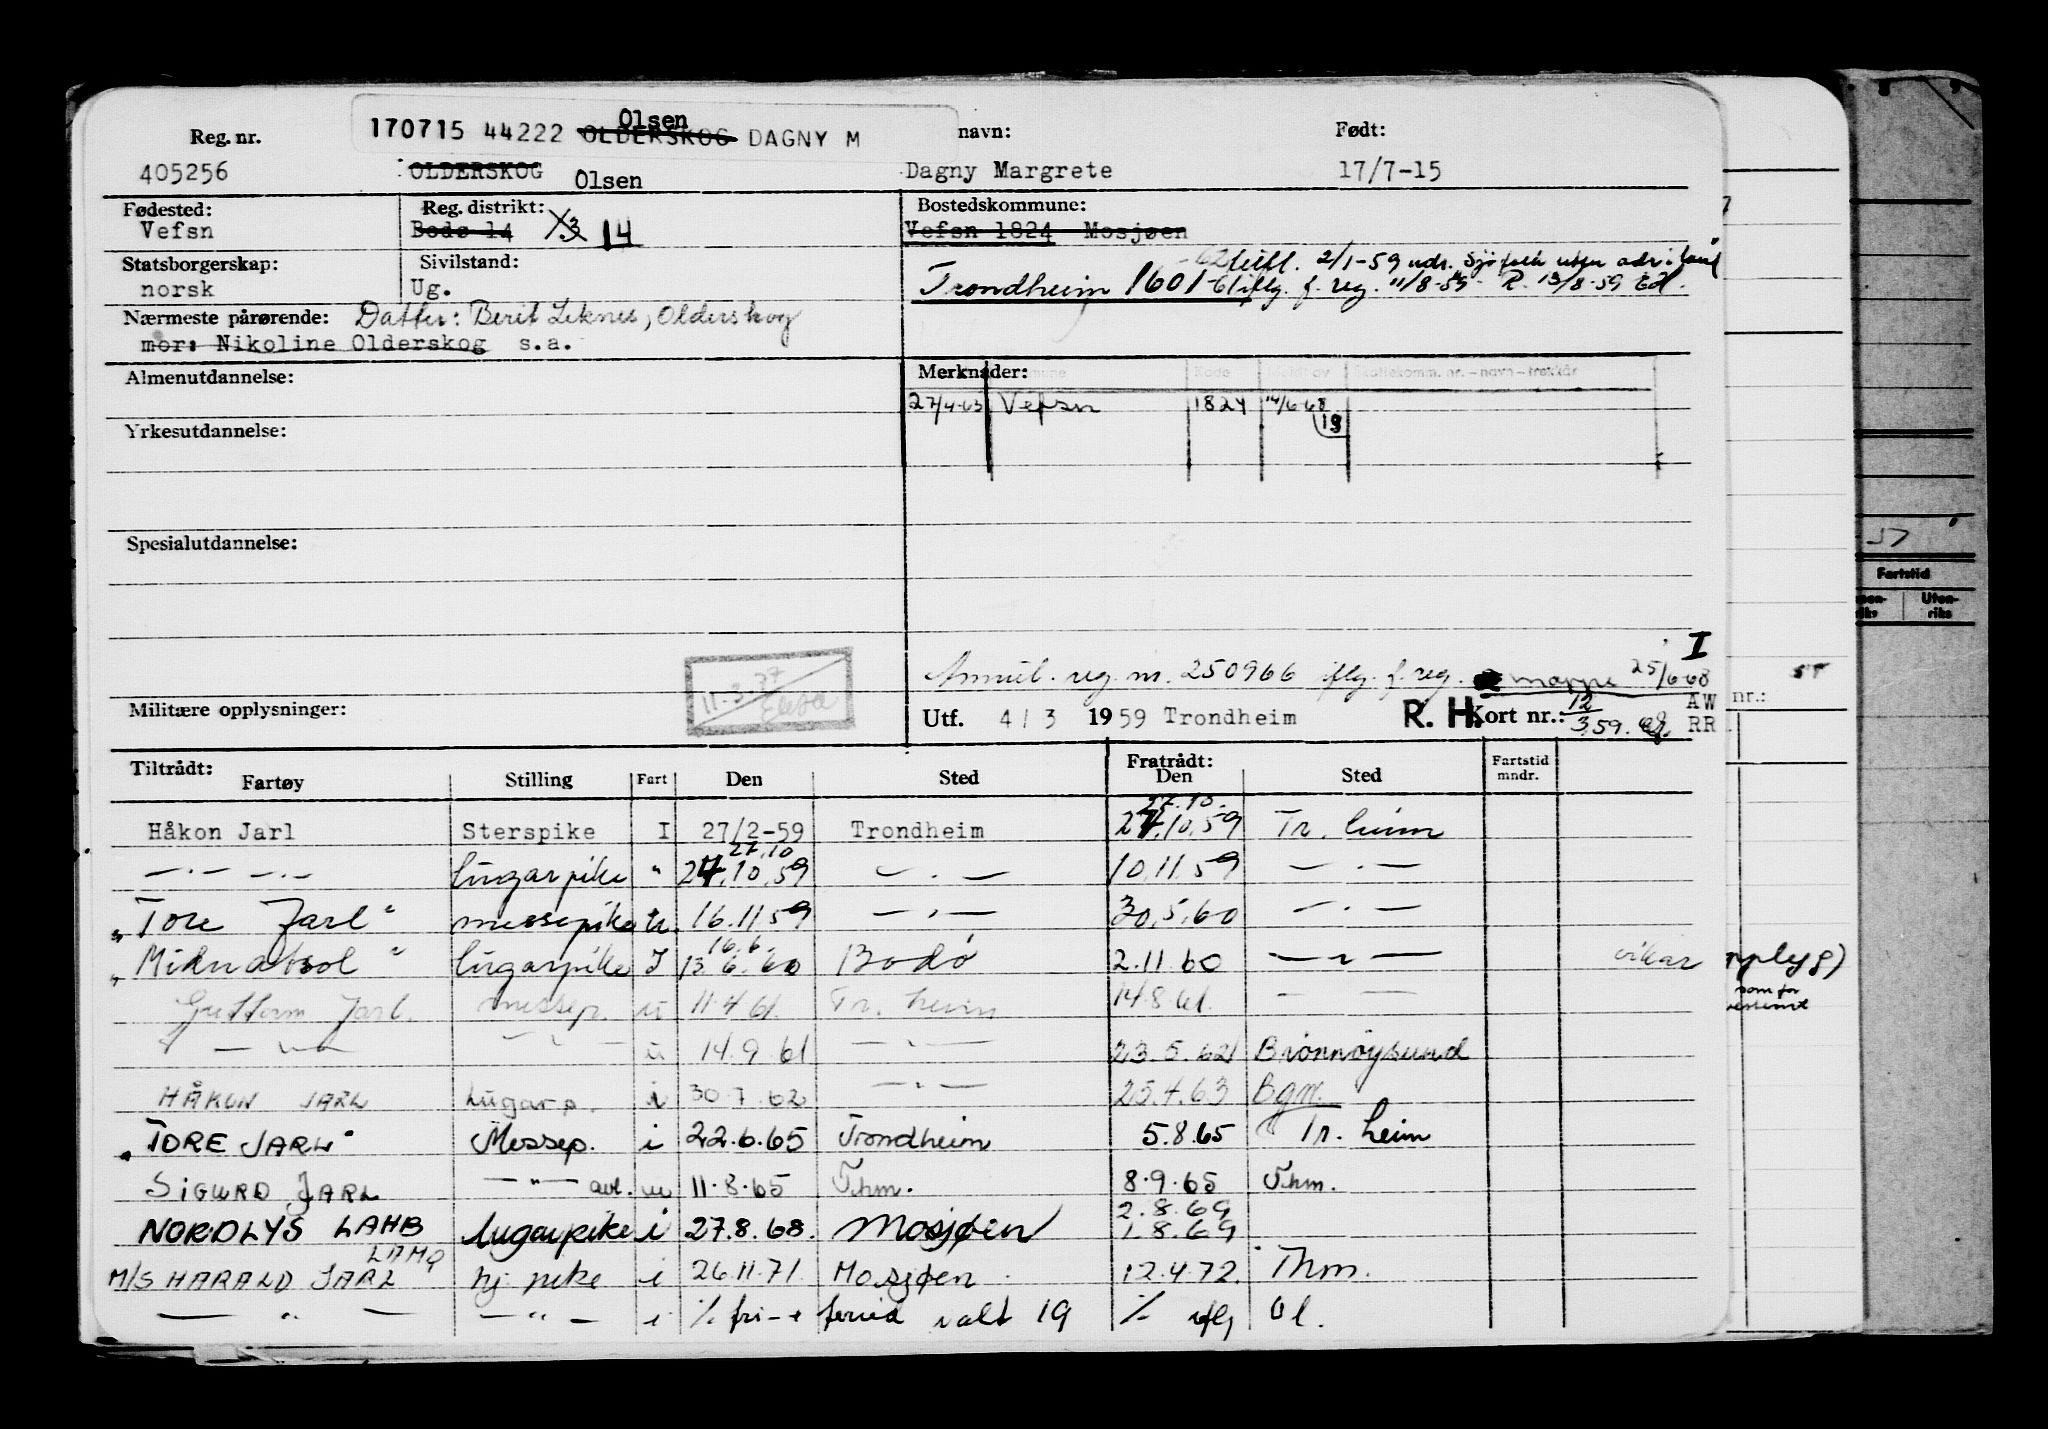 Olsen
170715 44222 OLDERSKOG DAGNY M
Reg. nr. navn: Født:
405256 OLDERSKOG Olsen Dagny Margrete 17/7-15
Fødested: Reg. distrikt: Bostedskommune:
Vefsn Bodø 14 X3 14 Vefsn 1824 Mosjøen
Statsborgerskap: Sivilstand:
norsk Ug. Trondheim 1601
Nærmeste pårørende: Datter: Berit Leknes, Olderskog
mor: Nikoline Olderskog s.a.
Almenutdannelse: Merknader:
27/4-63 Vefsn 1824 14/6-68
19
Yrkesutdannelse:
Spesialutdannelse:
I
Annul. reg. nr. 250966 iflg. f. reg. mappe 25/6-68
11.3.77
Militære opplysninger: Utf. 4/3 1959 Trondheim R. H. Kort nr.: 12/3.59. AW
RR
nr.:
Tiltrådt: Fratrådt: Fartstid mndr.
Fartøy Stilling Fart Den Sted Den Sted
27.10.
Håkon Jarl Sterspike I 27/2-59 Trondheim 27.10.59 Tr. heim
27.10
—·— —·— lugarpike " 27.10.59 —·— 10.11.59 —·—
"Tore Jarl" messepike u. 16.11.59 —·— 30.5.60 —·—
16.6.
"Midnatsol" lugarpike I 13.6.60 Bodø 2.11.60 —"— vikar
Guttorm Jarl. messep. u 11.4.61. Tr. heim 14.8.61. — —
— " — — " — u 14.9.61 —·— 23.5.62 Brønnøysund
HÅKON JARL Lugarp. i 30.7.62 —·— 25.4.63 Bgn.
"TORE JARL" Messep. i 22.6.65 Trondheim 5.8.65 Tr. heim
SIGURD JARL —"— avl. 11.8.65 Thm. 8.9.65 Thm.
2.8.69
NORDLYS LAHB lugarpike i 27.8.68. Mosjøen 1.8.69
LAMQ
M/S HARALD JARL hj pike i 26.11.71. Mosjøen 12.4.72. Thm.
— " — — " — i % fri- + feried i alt 19 % iflg Ol.
Fartstid
Uten-
riks